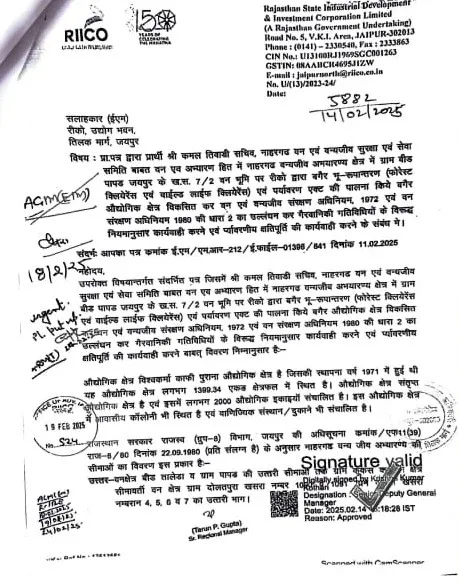 RIICO
150
YEARS OF
CELEBRATING
THE MAHATMA
Rajasthan State Industrial Development
& Investment Corporation Limited
(A Rajasthan Government Undertaking)
Road No. 5, V.K.I. Area, JAIPUR-302013
Phone : (0141) – 2330540, Fax : 2333863
CIN No.: U13100RJ1969SGC001263
GSTIN: 08AABCR4695J1ZW
E-mail : jaipurnorth@riico.co.in
No. U/(13)/2023-24/
Date:
5882
14/02/2025
सलाहकार (ईएम)
रीको, उद्योग भवन,
तिलक मार्ग, जयपुर
विषय : प्रा.पत्र द्वारा प्रार्थी श्री कमल तिवाडी सचिव, नाहरगढ वन एवं वन्यजीव सुरक्षा एवं सेवा
समिति बाबत वन एवं अभ्यारण हित में नाहरगढ वन्यजीव अभयारण्य क्षेत्र में ग्राम बीड
पापड जयपुर के ख.स. 7/2 वन भूमि पर रीको द्वारा बगैर भू-रूपान्तरण (फोरेस्ट
क्लियरेंस एवं वाईल्ड लाईफ क्लियरेंस) एवं पर्यावरण एक्ट की पालना किये बगैर
औद्योगिक क्षेत्र विकसित कर वन एवं वन्यजीव संरक्षण अधिनियम, 1972 एवं वन
संरक्षण अधिनियम 1980 की धारा 2 का उल्लंघन कर गैरवानिकी गतिविधियों के विरूद्ध
नियमानुसार कार्यवाही करने एवं पर्यावरणीय क्षतिपूर्ति की कार्यवाही करने के संबंध में।
AGM(EM)
संदर्भः आपका पत्र कमांक ई.एम/एम.आर-212/ई.फाईल-01396/641 दिनांक 11.02.2025
18/2/25
महोदय,
उपरोक्त विषयान्तर्गत संदर्भित पत्र जिसमें श्री कमल तिवाडी सचिव, नाहरगढ वन एवं वन्यजीव
सुरक्षा एवं सेवा समिति बाबत वन एवं अभ्यारण हित में नाहरगढ वन्यजीव अभयारण्य क्षेत्र में ग्राम
बीड पापड जयपुर के ख.स. 7/2 वन भूमि पर रीको द्वारा बगैर भू-रूपान्तरण (फोरेस्ट क्लियरेंस
एवं वाईल्ड लाईफ क्लियरेंस) एवं पर्यावरण एक्ट की पालना किये बगैर औद्योगिक क्षेत्र विकसित
एवं वन्यजीव संरक्षण अधिनियम, 1972 एवं वन संरक्षण अधिनियम 1980 की धारा 2 का
उल्लंघन कर गैरवानिकी गतिविधियों के विरूद्ध नियमानुसार कार्यवाही करने एवं पर्यावरणीय
क्षतिपूर्ति की कार्यवाही करने बाबत् विवरण निम्नानुसार है:-
urgent
Pl. put up
औद्योगिक क्षेत्र विश्वकर्मा काफी पुराना औद्योगिक क्षेत्र है जिसकी स्थापना वर्ष 1971 में हुई थी
यह औद्योगिक क्षेत्र लगभग 1399.34 एकड क्षेत्रफल में स्थित है। औद्योगिक क्षेत्र संतृप्त
औद्योगिक क्षेत्र है एवं इसमें लगभग 2000 औद्योगिक इकाइयाँ संचालित है। इस औद्योगिक क्षेत्र
में आवासीय कॉलोनी भी स्थित है एवं वाणिज्यिक संस्थान/दुकाने भी संचालित है।
19 FEB 2025
No. 524
राजस्थान सरकार राजस्व (ग्रुप-8) विभाग, जयपुर की अधिसूचना कमांक/एफ11(39)
राज-8/80 दिनांक 22.09.1980 (प्रति संलग्न है) के अनुसार नाहरगढ वन्य जीव अभ्यारण्य की
सीमाओं का विवरण इस प्रकार है:-
उत्तर-वनक्षेत्र बीड तालेडा व ग्राम पापड की उत्तरी सीमाओं तक ग्राम कूकस वन क्षेत्र
सीमावर्ती वन क्षेत्र ग्राम दौलतपुरा खसरा नम्बर
नम्बरान 4, 5, 6 व 7 का उत्तरी भाग।
Signature valid
Digitally signed by Kumar
Designation : Senior Deputy General
Manager
Date: 2025.02.14 16:18:28 IST
Reason: Approved
(Tarun P. Gupta)
Sr. Regional Manager
Scanned with CamScanner